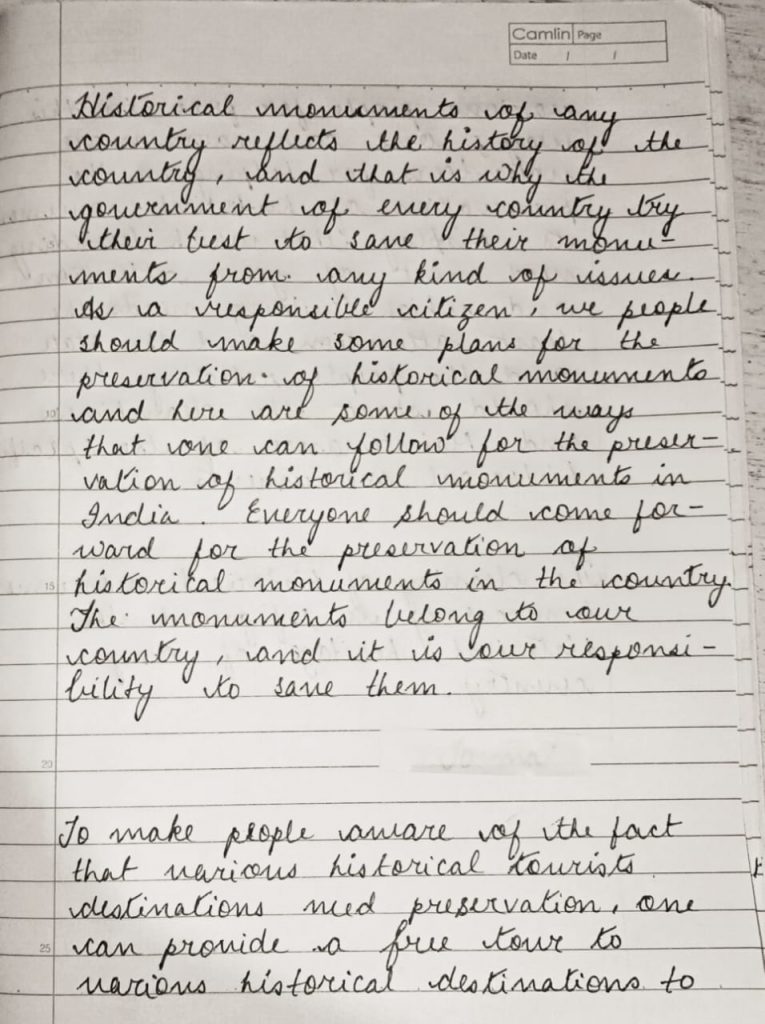 Camlin Page
Date / /
Historical monuments of any
country reflects the history of the
country, and that is why the
government of every country try
their best to save their monu-
ments from any kind of issues.
As a responsible citizen, we people
should make some plans for the
preservation of historical monuments
10 and here are some of the ways
that one can follow for the preser-
vation of historical monuments in
India. Everyone should come for-
ward for the preservation of
15 historical monuments in the country.
The monuments belong to our
country, and it is our responsi-
bility to save them.
20
To make people aware of the fact
that various historical tourists
destinations need preservation, one
25 can provide a free tour to
various historical destinations to